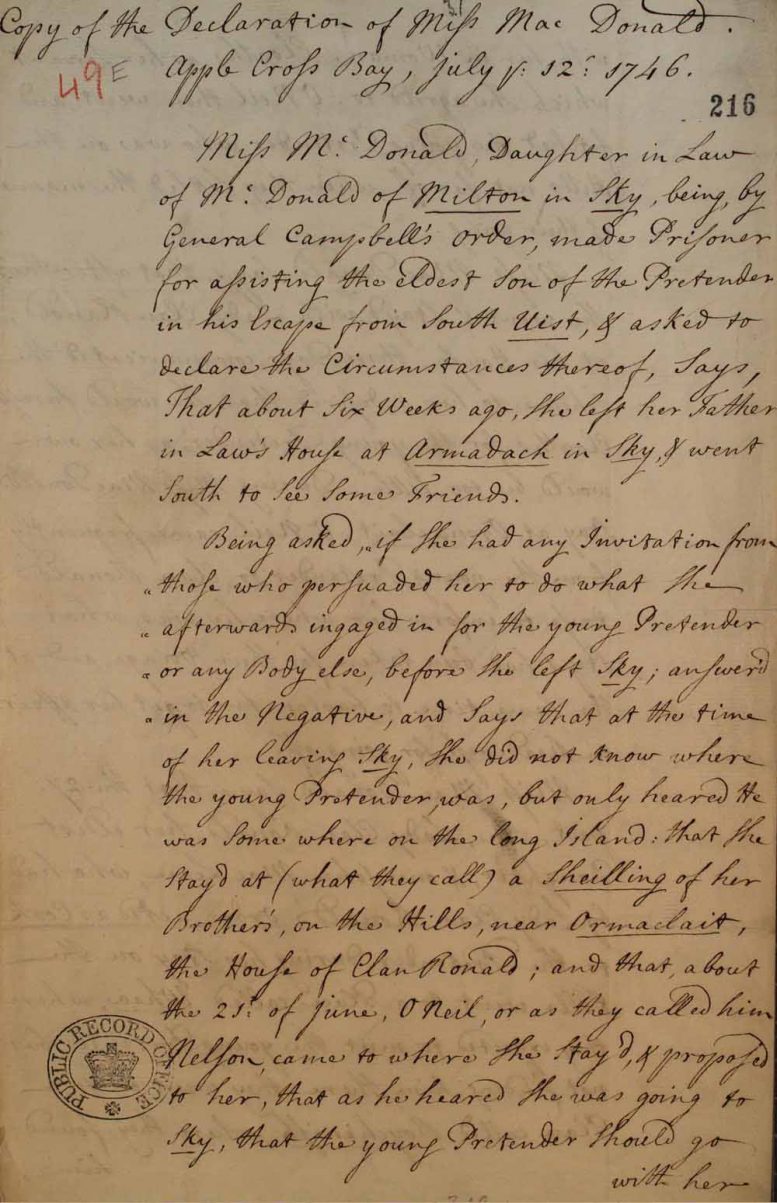 Copy of the Declaration of Miss Mac Donald.
Apple Cross Bay, july ye: 12: 1746.
49E
216
Miss Mc: Donald, Daughter in Law
of Mr: Donald of Milton in Sky, being, by
General Campbell's order, made Prisoner
for assisting the eldest Son of the Pretender
in his Escape from South Uist, & asked to
declare the Circumstances thereof, Says,
That about Six Weeks ago, She left her Father
in Law's House at Armadach in Sky, & went
South to See Some Friends.
Being asked, "if She had any Invitation from
"those who persuaded her to do what She
"afterwards ingaged in for the young Pretender
"or any Body else, before She left Sky; answer'd
"in the Negative, and Says that at the time
of her leaving Sky, She did not know where
the young Pretender was, but only heared He
was Some where on the long Island: that She
Stay'd at (what they call) a Sheilling of her
Brother's, on the Hills, near Ormaclait,
the House of Clan Ronald; and that, about
the 21st: of june, O Neil, or as they called him
Nelson, came to where She Stay'd, & proposed
to her, that as he heared She was going to
Sky, that the young Pretender Should go
with her
PUBLIC RECORD OFFICE